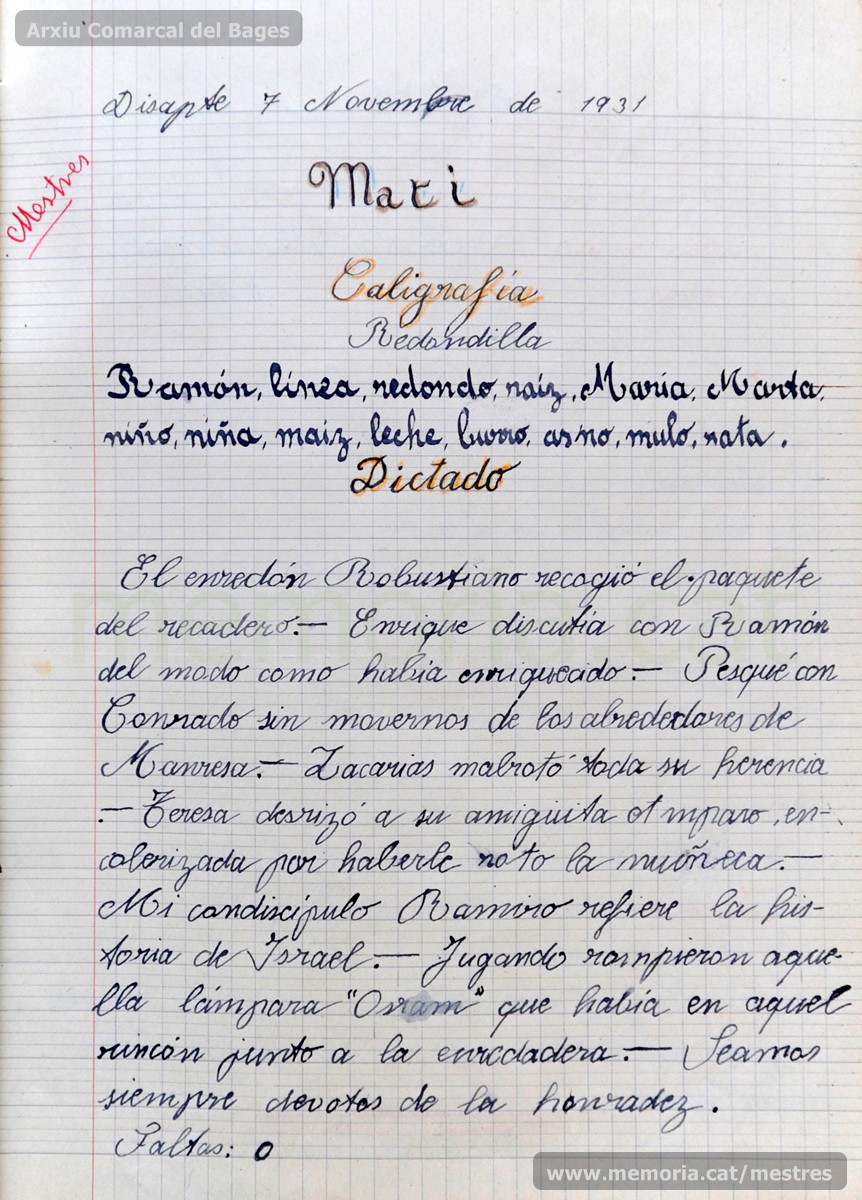 Arxiu Comarcal del Bages
Disapte 7 Novembre de 1931
Mestres
Mati
Caligrafía
Redondilla
Ramón, línea, redondo, raíz, María, Marta,
niño, niña, maiz, leche, burro, asno, mulo, rata.
Dictado
El enredón Robustiano recogió el paquete
del recadero.— Enrique discutía con Ramón
del modo como había enriquecido.— Pesqué con
Conrado sin movernos de los alrededores de
Manresa.— Zacarias malrotó toda su herencia
.— Teresa desrizó a su amigüita Amparo, en-
colerizada por haberle roto la muñeca.—
Mi condiscípulo Ramiro refiere la his-
toria de Israel.— Jugando rompieron aque-
lla lámpara "Osram" que había en aquel
rincón junto a la enredadera.— Seamos
siempre devotos de la honradez.
Faltas: 0
www.memoria.cat/mestres